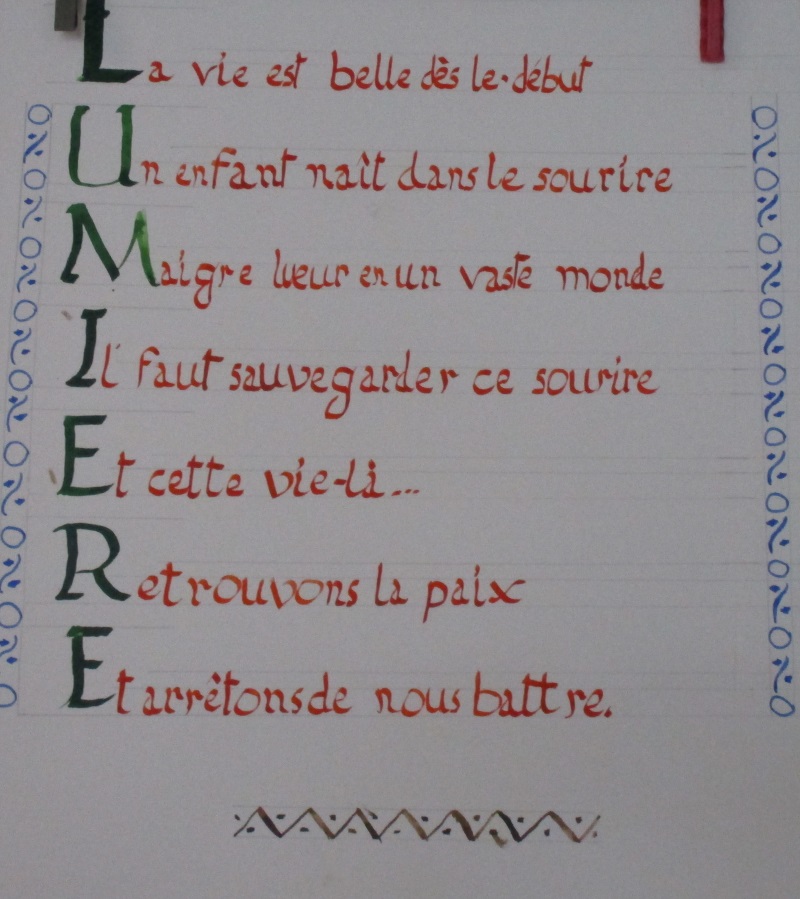 La vie est belle dès le début
Un enfant naît dans le sourire
Maigre lueur en un vaste monde
Il faut sauvegarder ce sourire
Et cette vie-là...
Retrouvons la paix
Et arrêtons de nous battre.